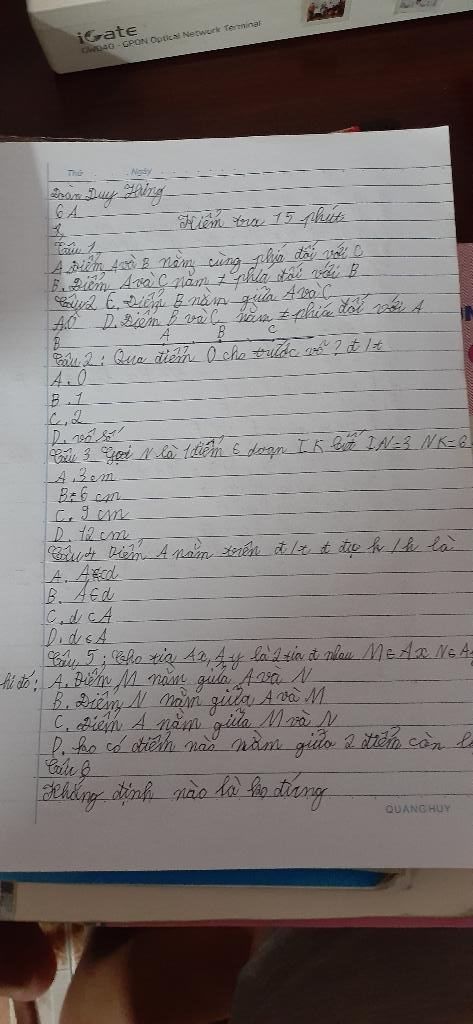 iGate
GW040 - GPON Optical Network Terminal
Thứ Ngày
Đoàn Duy Hưng
6A
Kiểm tra 15 phút
Câu 1,
A. Điểm A và B nằm cùng phía đối với C
B. Điểm A và C nằm ≠ phía đối với B
C. Điểm B nằm giữa A và C
D. Điểm B và C nằm ≠ phía đối với A
A B C
Câu 2: Qua điểm O cho trước vẽ ? đ/t
A. 0
B. 1
C. 2
D. vô số
Câu 3 Gọi N là 1 điểm ∈ đoạn IK biết IN=3 NK=6
A. 3cm
B. 6 cm
C. 9 cm
D. 12 cm
Câu 4 Điểm A nằm trên đ/t d đc k/h là
A. A⊂d
B. A∈d
C. d⊂A
D. d∈A
Câu 5; Cho tia Ax, Ay là 2 tia đ nhau M∈Ax N∈A
hi đó: A. Điểm M nằm giữa A và N
B. Điểm N nằm giữa A và M
C. Điểm A nằm giữa M và N
D. ko có điểm nào nằm giữa 2 điểm còn l
Câu 6
Khẳng định nào là ko đúng
QUANGHUY